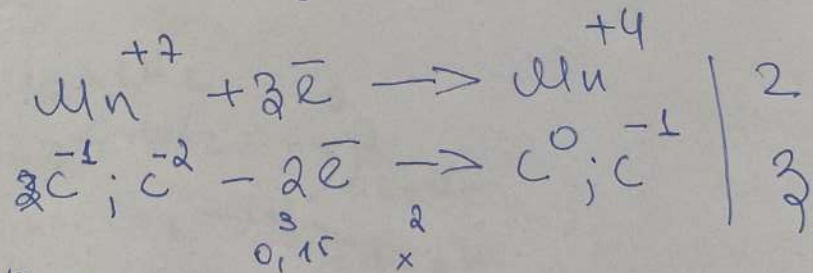 Mn⁺⁷ + 3ē → Mn⁺⁴ | 2
C⁻¹; C⁻² - 2ē → C⁰; C⁻¹ | 3
3 2
0,15 x